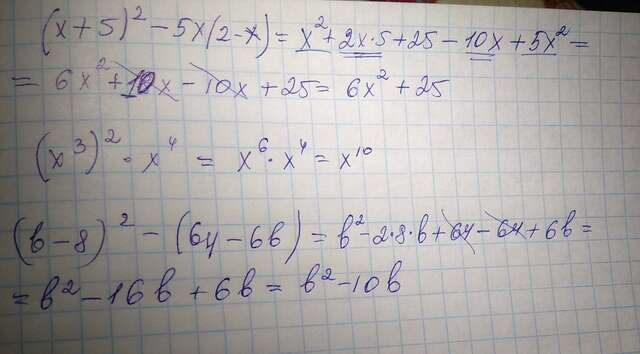 (x+5)² − 5x(2−x) = x² + 2x·5 + 25 − 10x + 5x² =
= 6x² + 10x − 10x + 25 = 6x² + 25
(x³)² · x⁴ = x⁶ · x⁴ = x¹⁰
(b−8)² − (64−6b) = b² − 2·8·b + 64 − 64 + 6b =
= b² − 16b + 6b = b² − 10b